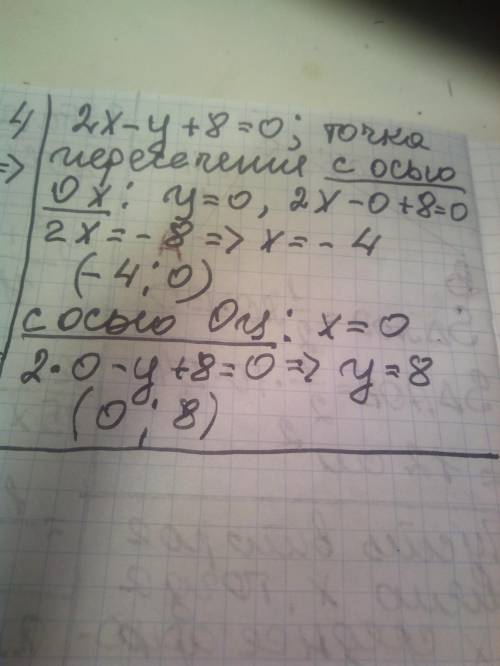 4) 2x-y+8=0; точка
=> пересечения с осью
Ох: y=0, 2x-0+8=0
2x=-8 => x=-4
(-4; 0)
с осью Оу: x=0
2·0-y+8=0 => y=8
(0; 8)